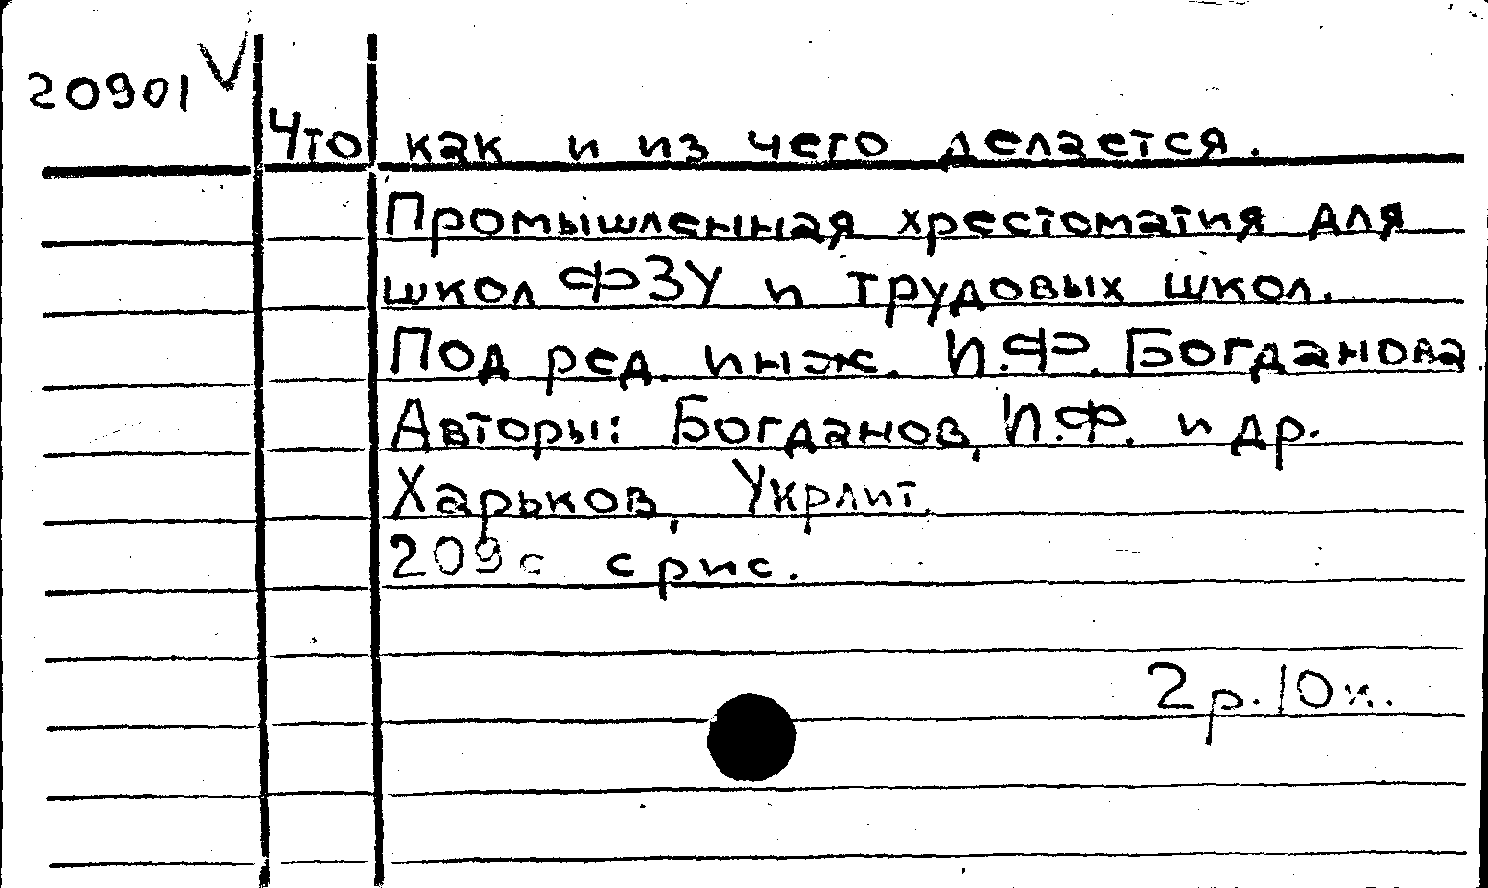 20901 V
Что как и из чего делается.
Промышленная хрестоматия для
школ ФЗУ и трудовых школ.
Под ред. инж. И.Ф. Богданова
Авторы: Богданов, И.Ф. и др.
Харьков, Укрлит.
209 с с рис.
2 р. 10 к.